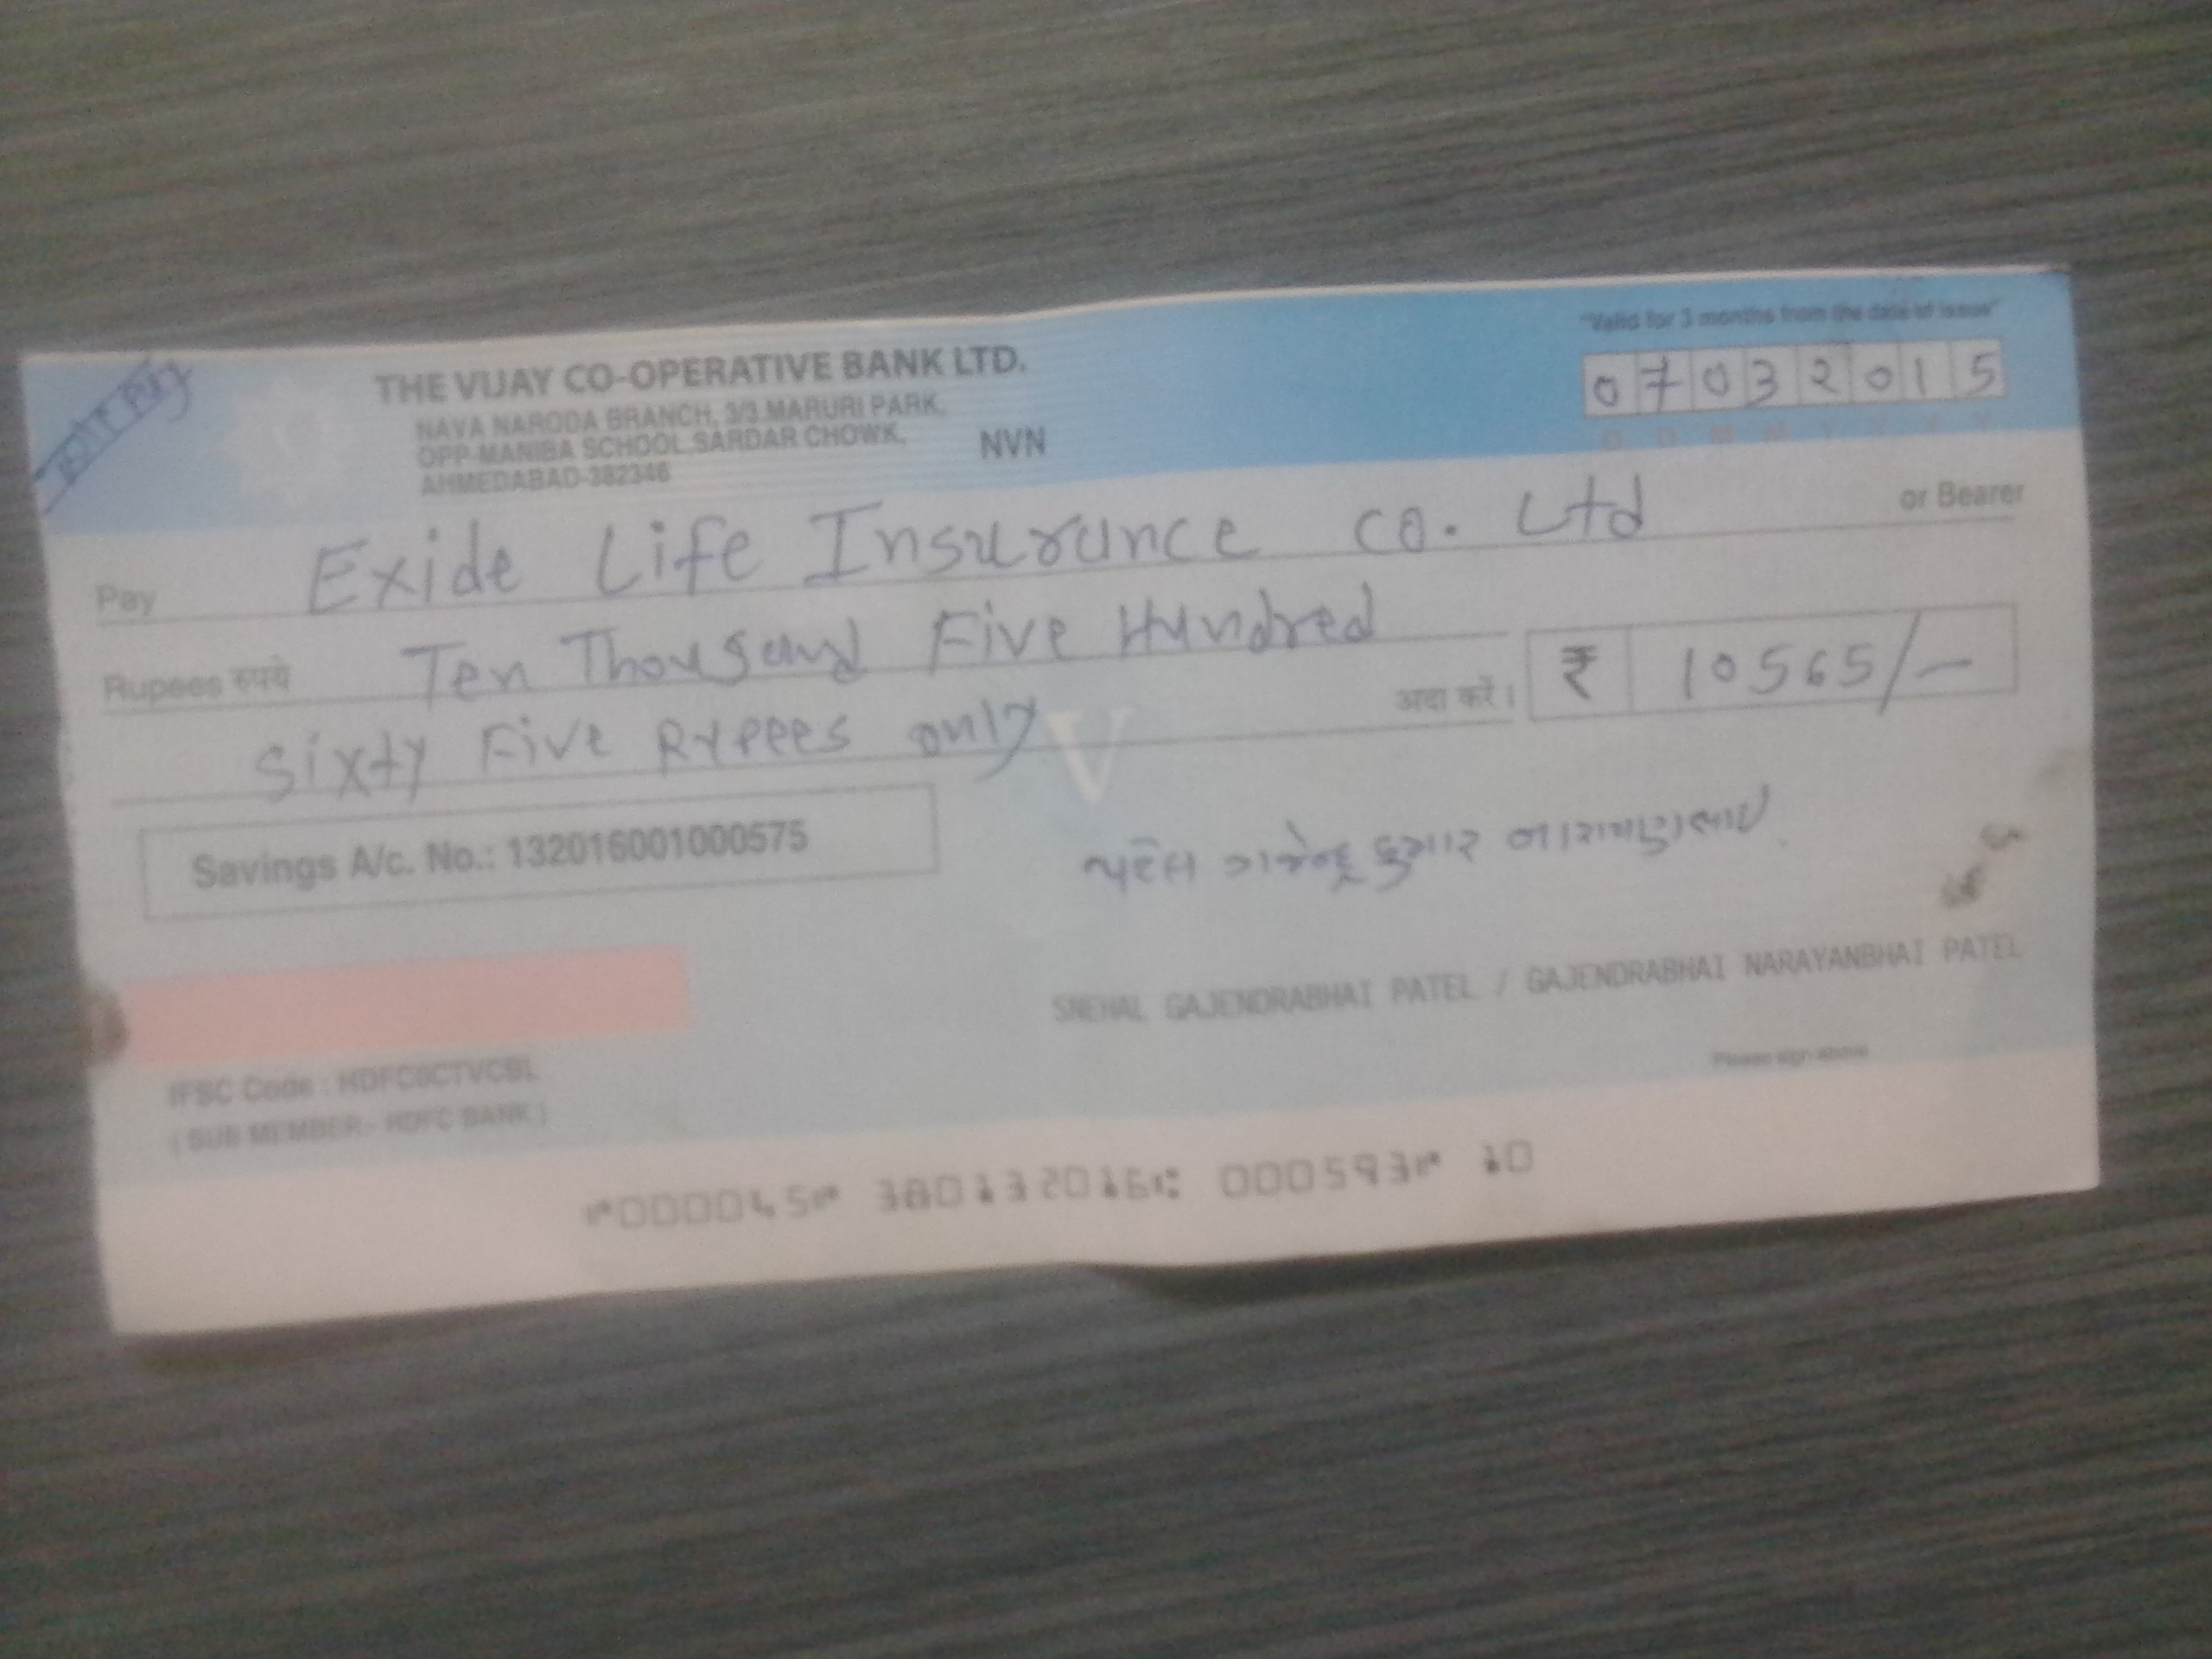 "Valid for 3 months from the date of issue"
THE VIJAY CO-OPERATIVE BANK LTD.
NAVA NARODA BRANCH, 3/3 MARURI PARK,
OPP-MANIBA SCHOOL,SARDAR CHOWK,
AHMEDABAD-382346
NVN
07032015
D D M M Y Y Y Y
Pay Exide Life Insurance co. Ltd or Bearer
Rupees रुपये Ten Thousand Five Hundred
Sixty Five Rypees only अदा करें। ₹ 10565/-
V
Savings A/c. No.: 132016001000575
પટેલ ગજેન્દ્રકુમાર નારાયણભાઇ
SNEHAL GAJENDRABHAI PATEL / GAJENDRABHAI NARAYANBHAI PATEL
Please sign above
IFSC Code : HDFC0CTVCBL
( SUB MEMBER:- HDFC BANK )
⑈000045⑈ 380132016⑆ 000593⑈ 10